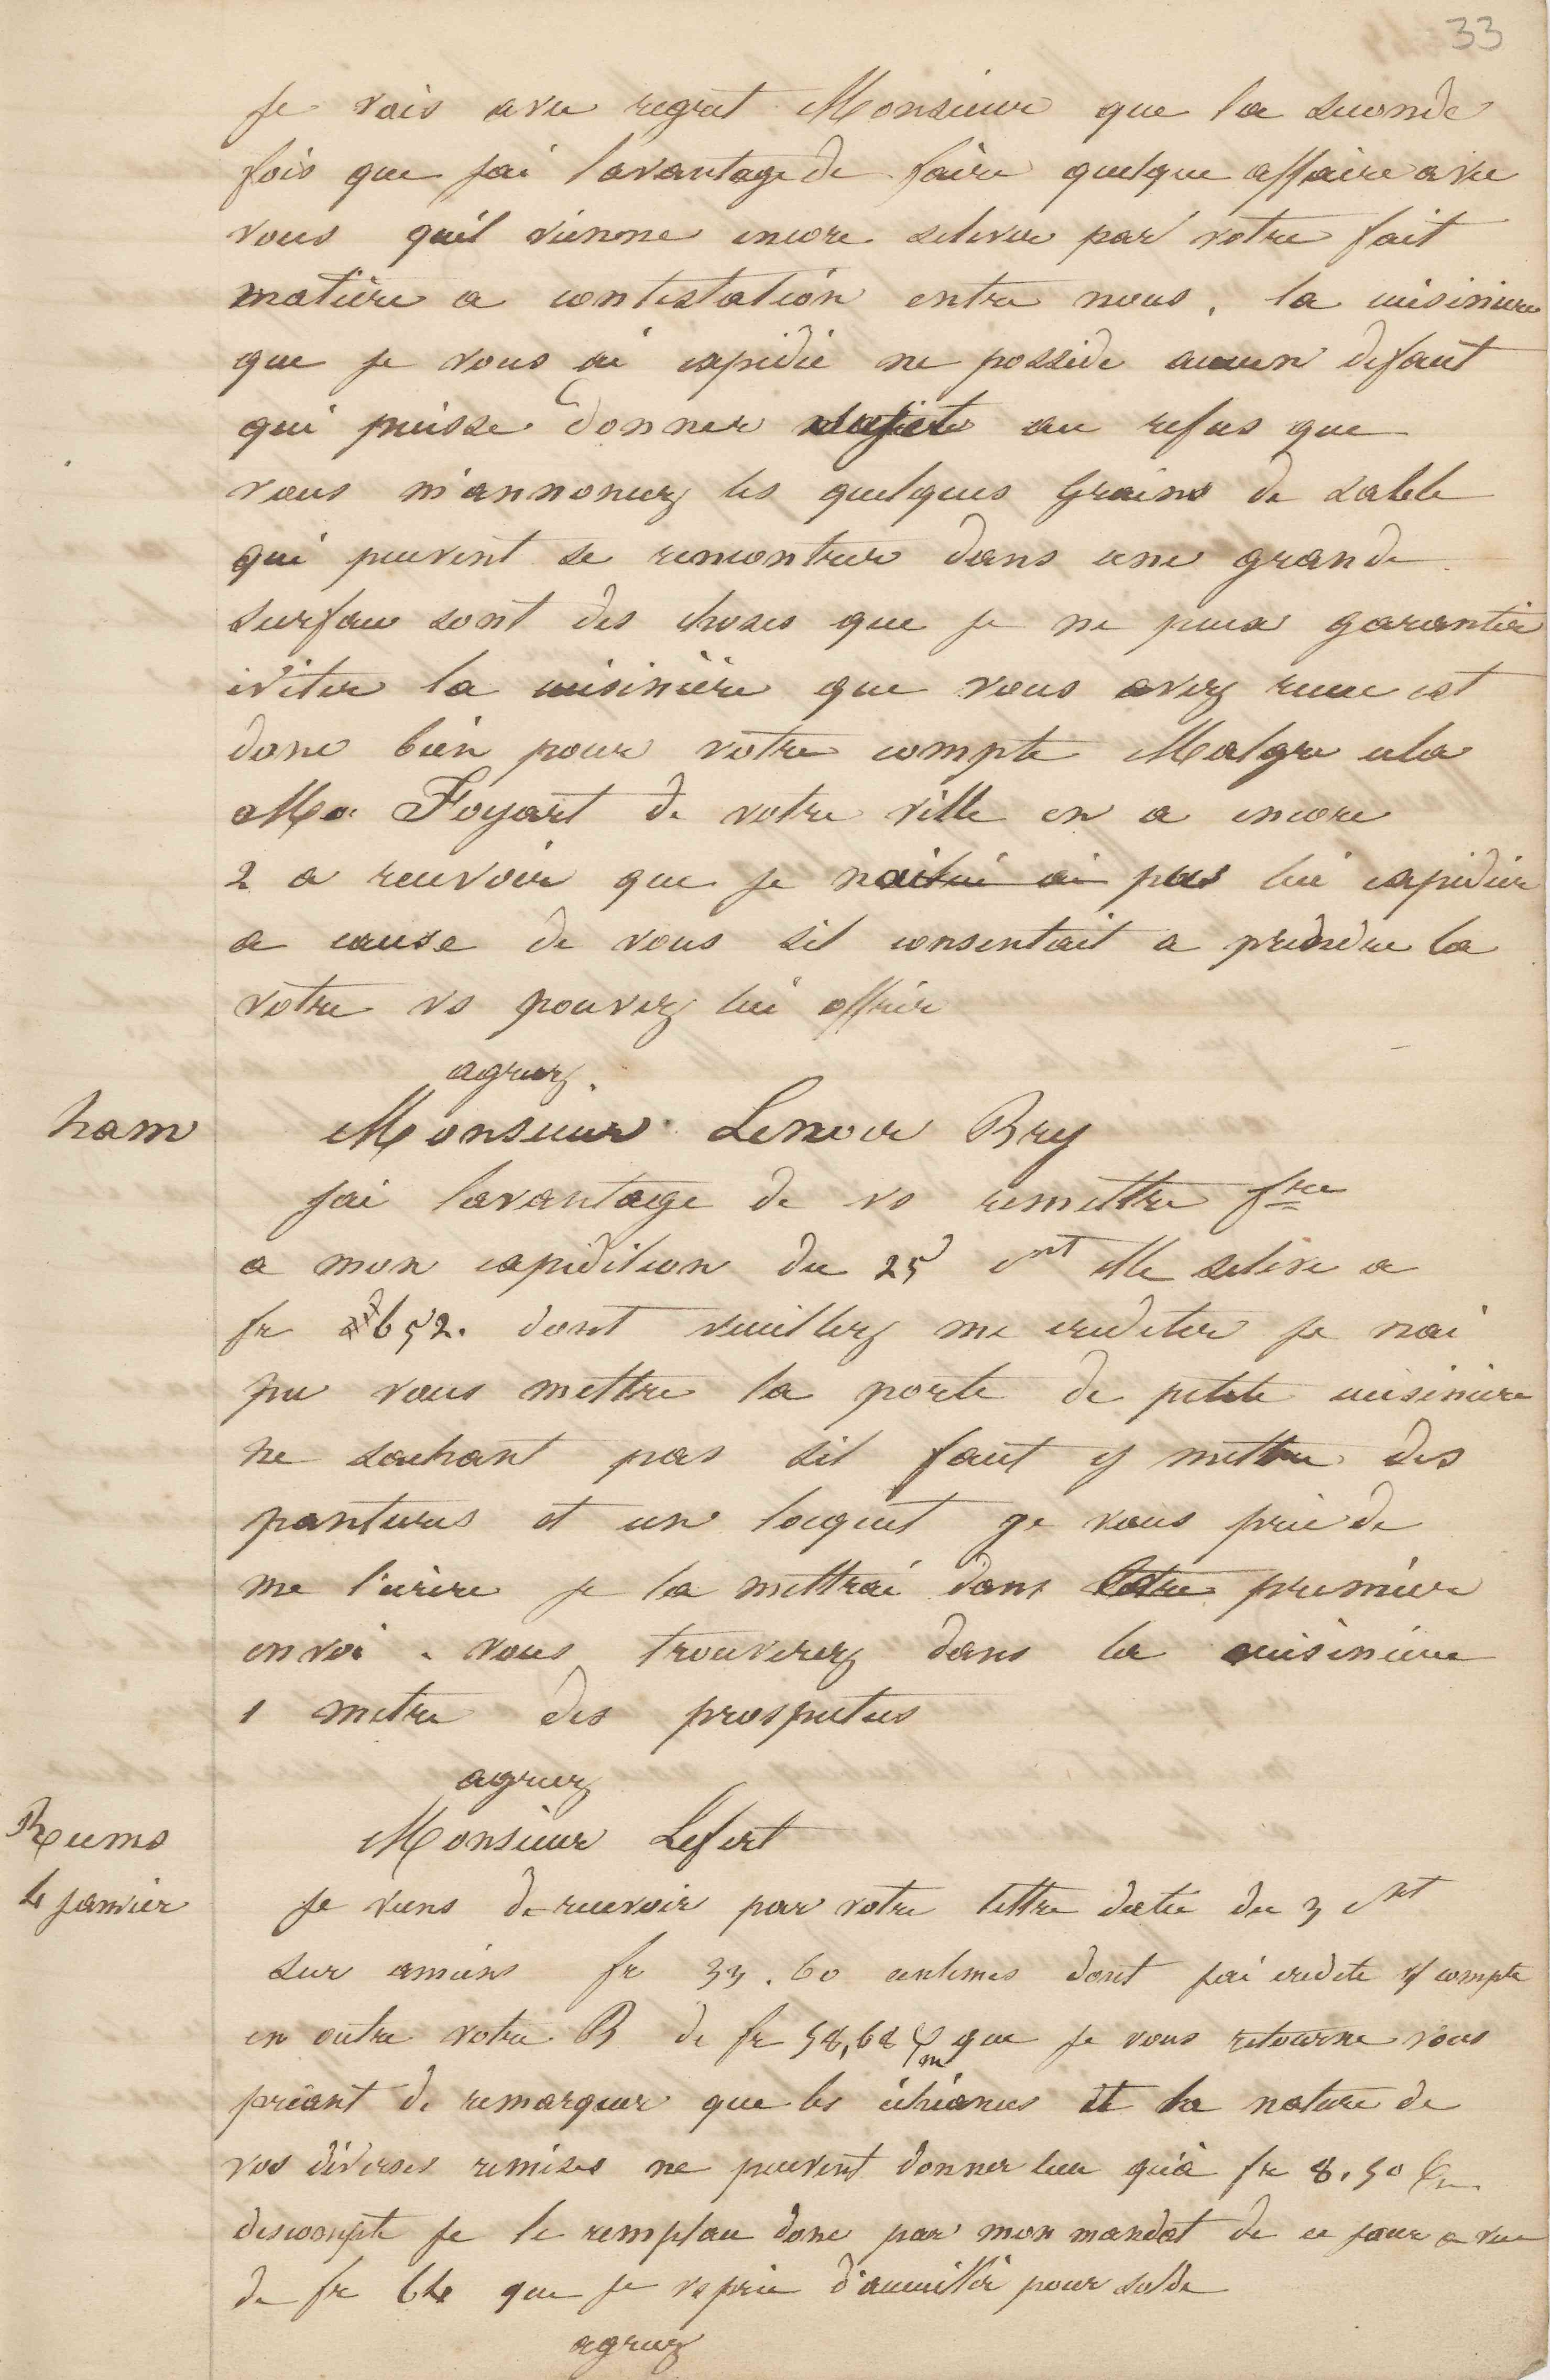 33
Je vois avec regret Monsieur que la seconde
fois que jai lavantage de faire quelque affaire avec
vous quil vienne encore selever par votre fait
matière a contestation entre nous. la cuisiniere
que je vous ai expidié ne posside aucun defaut
qui puisse donner sujet au refus que
vous m'annoncez les quelques Grains de sable
qui peuvent se rencontrer dans une grande
surface sont des choses que je ne peux garantir
eviter la cuisinière que vous avez recue est
donc bien pour votre compte Malgre cela
Mr Foyart de votre ville en a encore
2 a recevoir que je pas lui expidier
a cause de vous sil consentait a prendre la
votre vs pouvez lui offrir
agreez.
ham
Monsieur Lenoir Bry
jai lavantage de vs remettre fre
a mon expidition du 25 Ct elle seleve a
fr 652. dont veuillez me crediter je nai
pu vous mettre la porte de petite cuisiniere
ne sachant pas sil faut y mettre des
pantures et un loquet ge vous prie de
me l'ecrire je la mettrai dans premier
envoi. vous trouverez dans la cuisiniere
1 metre des prospectus
agreez
Reims
4 janvier
Monsieur Lefert
Je viens de recevoir par votre lettre datée du 3 Ct
sur amiens fr 33.60 centimes dont jai credite vf compte
en outre votre B de fr 58,68 que je vous retourne vous
priant de remarquer que les échéances et la nature de
vos diverses remises ne peuvent donner lieu qu'à fr 8.50
descompte je le remplace donc par mon mandat de ce jour a vue
de fr 64 que je vs prie d'accueillir pour solde
agreez